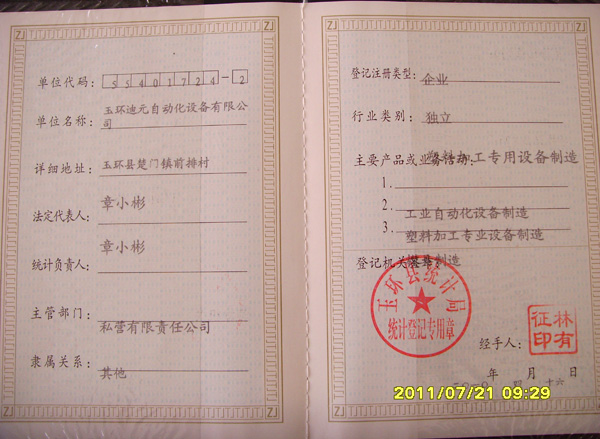 ZJ ZJ ZJ ZJ
单位代码：55401724-2
单位名称：玉环迪元自动化设备有限公
司
详细地址：玉环县楚门镇前排村
法定代表人：章小彬
统计负责人：章小彬
主管部门：
私营有限责任公司
隶属关系：其他
ZJ ZJ
登记注册类型：企业
行业类别：独立
主要产品或业务活动：塑料加工专用设备制造
1.
2.工业自动化设备制造
3.塑料加工专业设备制造
登记机关（盖章）制造
玉环县统计局
统计登记专用章
经手人：
林有征印
年 月 日
四 十六
2011/07/21 09:29